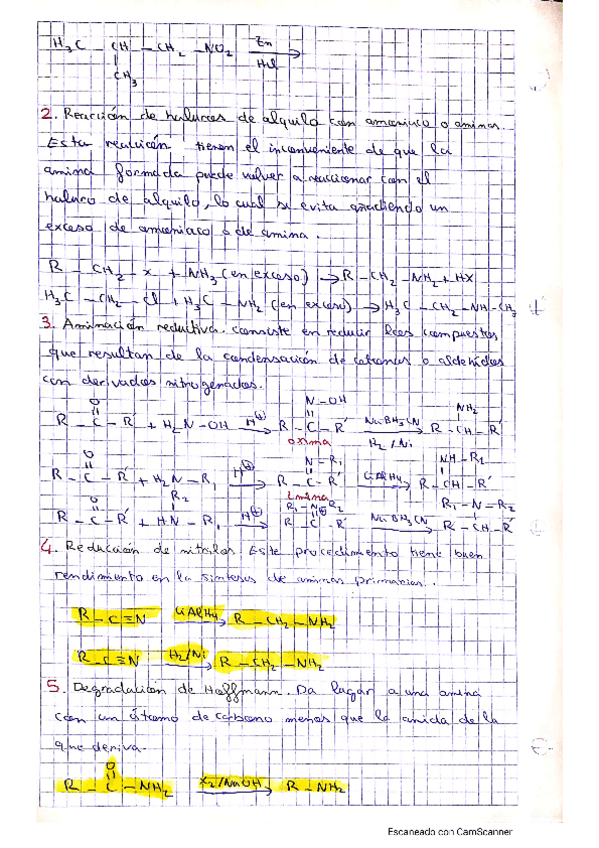 H₃C – CH – CH₂ – NO₂ Zn/HCl →
CH₃
2. Reacción de haluros de alquilo con amoniaco o aminas.
Esta reacción tienen el inconveniente de que la
amina formada puede volver a reaccionar con el
haluro de alquilo, lo cual se evita añadiendo un
exceso de amoniaco o de amina.
R – CH₂ – x + NH₃ (en exceso) → R – CH₂ – NH₂ + HX
H₃C – CH₂ – Cl + H₃C – NH₂ (en exceso) → H₃C – CH₂ – NH – CH₃
3. Aminación reductiva. consiste en reducir los compuestos
que resultan de la condensación de cetonas o aldehidos
con derivados nitrogenados.
O N–OH NH₂
R – C – R' + H₂N – OH H⊕ → R – C – R' NaBH₃CN → R – CH – R'
oxima /Ni
O N–R₁ NH–R₁
R – C – R' + H₂N – R₁ H⊕ → R – C – R' LiAlH₄ → R – CH – R'
O R₂ imina R₁–N⊕R₂ R₁–N–R₂
R – C – R' + HN – R₁ H⊕ → R – C – R' NaBH₃CN → R – CH – R'
4. Reducción de nitrilos. Este procedimiento tiene buen
rendimiento en la sintesis de aminas primarias.
R – C≡N LiAlH₄ → R – CH₂ – NH₂
R – C≡N H₂/Ni → R – CH₂ – NH₂
5. Degradación de Hoffmann. Da lugar a una amina
con un átomo de carbono menos que la amida de la
que deriva.
O
R – C – NH₂ X₂/NaOH → R – NH₂
Escaneado con CamScanner